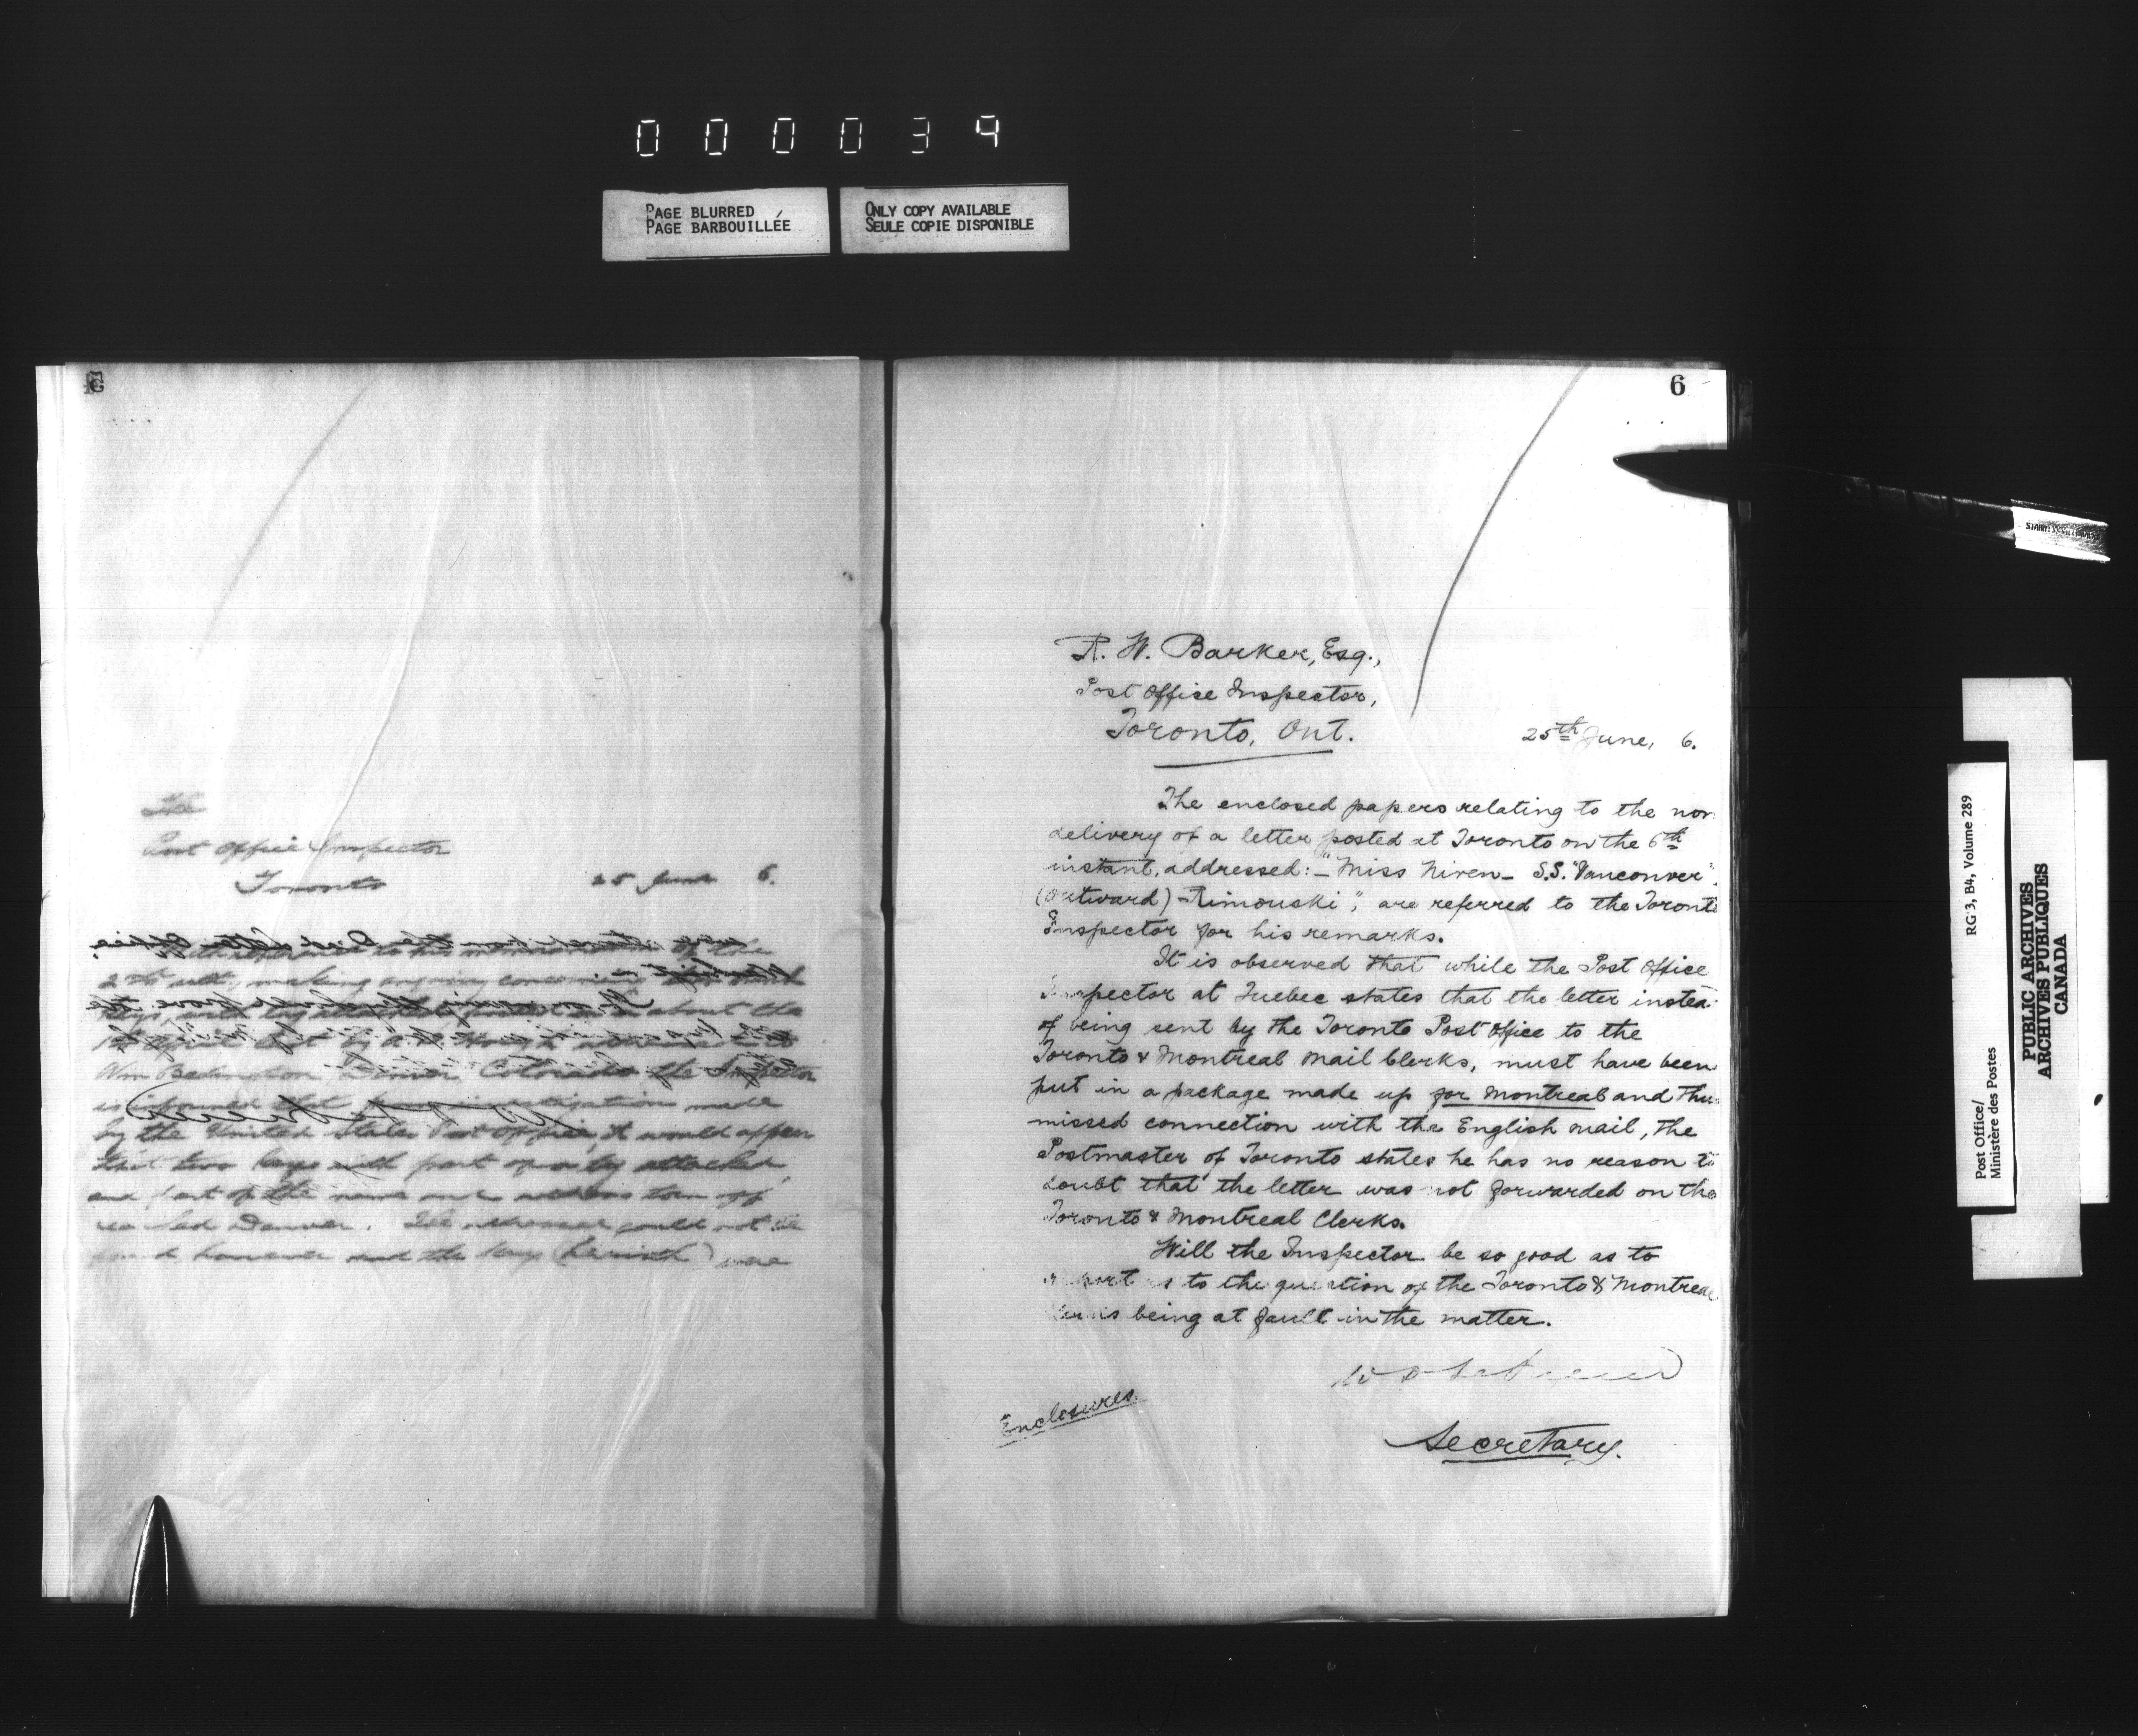 000039
PAGE BLURRED
PAGE BARBOUILLÉE
ONLY COPY AVAILABLE
SEULE COPIE DISPONIBLE
The
Post Office Inspector
Toronto
25 June 6.
With reference to his memorandum of the
2 ult, making enquiry concerning
keys, with tag attached posted about the
1st April last by
Wm Denver Colorado the Inspector
is informed that from investigation made
by the United States Post Office, it would appear
that two keys with part of a tag attached,
and part of the name and address torn off
reached Denver. The addressee could not be
found however and the keys (herewith) were
6
R. W. Barker, Esq.,
Post Office Inspector,
Toronto, Ont.
25th June, 6.
The enclosed papers relating to the non
delivery of a letter posted at Toronto on the 6th
instant, addressed:- "Miss Niven- S.S. "Vancouver"
(Outward) - Rimouski", are referred to the Toronto
Inspector for his remarks.
It is observed that while the Post Office
Inspector at Quebec states that the letter instead
of being sent by the Toronto Post Office to the
Toronto & Montreal Mail Clerks, must have been
put in a package made up for Montreal and thus
missed connection with the English mail, the
Postmaster of Toronto states he has no reason to
doubt that the letter was not forwarded on the
Toronto & Montreal Clerks.
Will the Inspector be so good as to
report as to the question of the Toronto & Montreal
Clerks being at fault in the matter.
Enclosures.
Secretary.
Post Office/
Ministère des Postes
RG 3, B4, Volume 289
PUBLIC ARCHIVES
ARCHIVES PUBLIQUES
CANADA